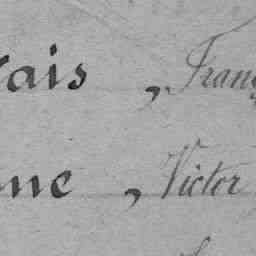 ais, Franç
ne, Victor